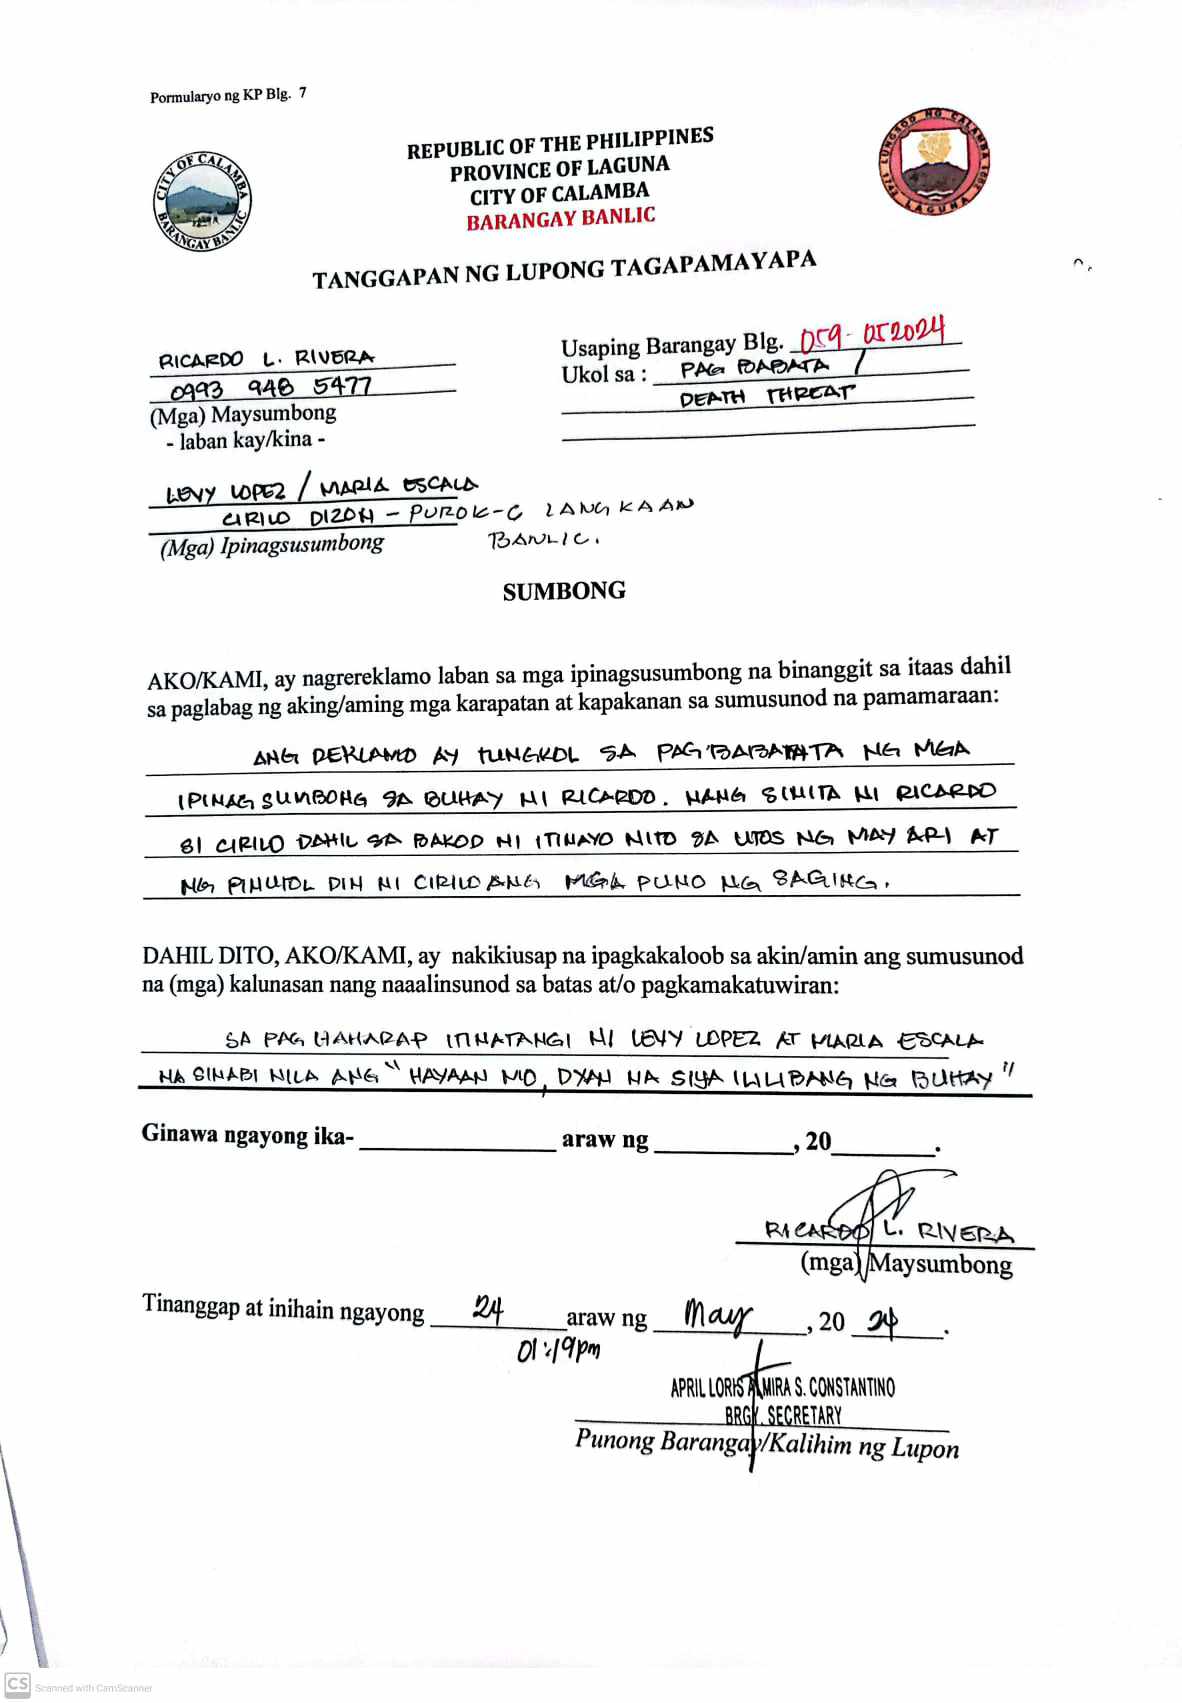 Pormularyo ng KP Blg. 7
REPUBLIC OF THE PHILIPPINES
PROVINCE OF LAGUNA
CITY OF CALAMBA
BARANGAY BANLIC
CITY OF CALAMBA
BARANGAY BANLIC
LUNGSOD NG CALAMBA
LAGUNA
TANGGAPAN NG LUPONG TAGAPAMAYAPA
RICARDO L. RIVERA
0993 948 5477
(Mga) Maysumbong
- laban kay/kina -
Usaping Barangay Blg. 059-052024
Ukol sa : PAG BABATA /
DEATH THREAT
LEVY LOPEZ / MARIA ESCALA
CIRILO DIZON - PUROK-C LANGKAAN
BANLIC.
(Mga) Ipinagsusumbong
SUMBONG
AKO/KAMI, ay nagrereklamo laban sa mga ipinagsusumbong na binanggit sa itaas dahil
sa paglabag ng aking/aming mga karapatan at kapakanan sa sumusunod na pamamaraan:
ANG REKLAMO AY TUNGKOL SA PAG BABANTA NG MGA
IPINAG SUMBONG SA BUHAY NI RICARDO. NANG SINITA NI RICARDO
SI CIRILO DAHIL SA BAKOD NI ITINAYO NITO SA UTOS NG MAY ARI AT
NG PINUTOL DIN NI CIRILO ANG MGA PUNO NG SAGING.
DAHIL DITO, AKO/KAMI, ay nakikiusap na ipagkakaloob sa akin/amin ang sumusunod
na (mga) kalunasan nang naaalinsunod sa batas at/o pagkamakatuwiran:
SA PAG HAHARAP ITINATANGI NI LEVY LOPEZ AT MARIA ESCALA
NA SINABI NILA ANG "HAYAAN MO, DYAN NA SIYA ILILIBANG NG BUHAY"
Ginawa ngayong ika- araw ng , 20 .
RICARDO L. RIVERA
(mga) Maysumbong
Tinanggap at inihain ngayong 24 araw ng May , 20 24 .
01:19pm
APRIL LORIS MIRA S. CONSTANTINO
BRGY. SECRETARY
Punong Barangay/Kalihim ng Lupon
CS Scanned with CamScanner